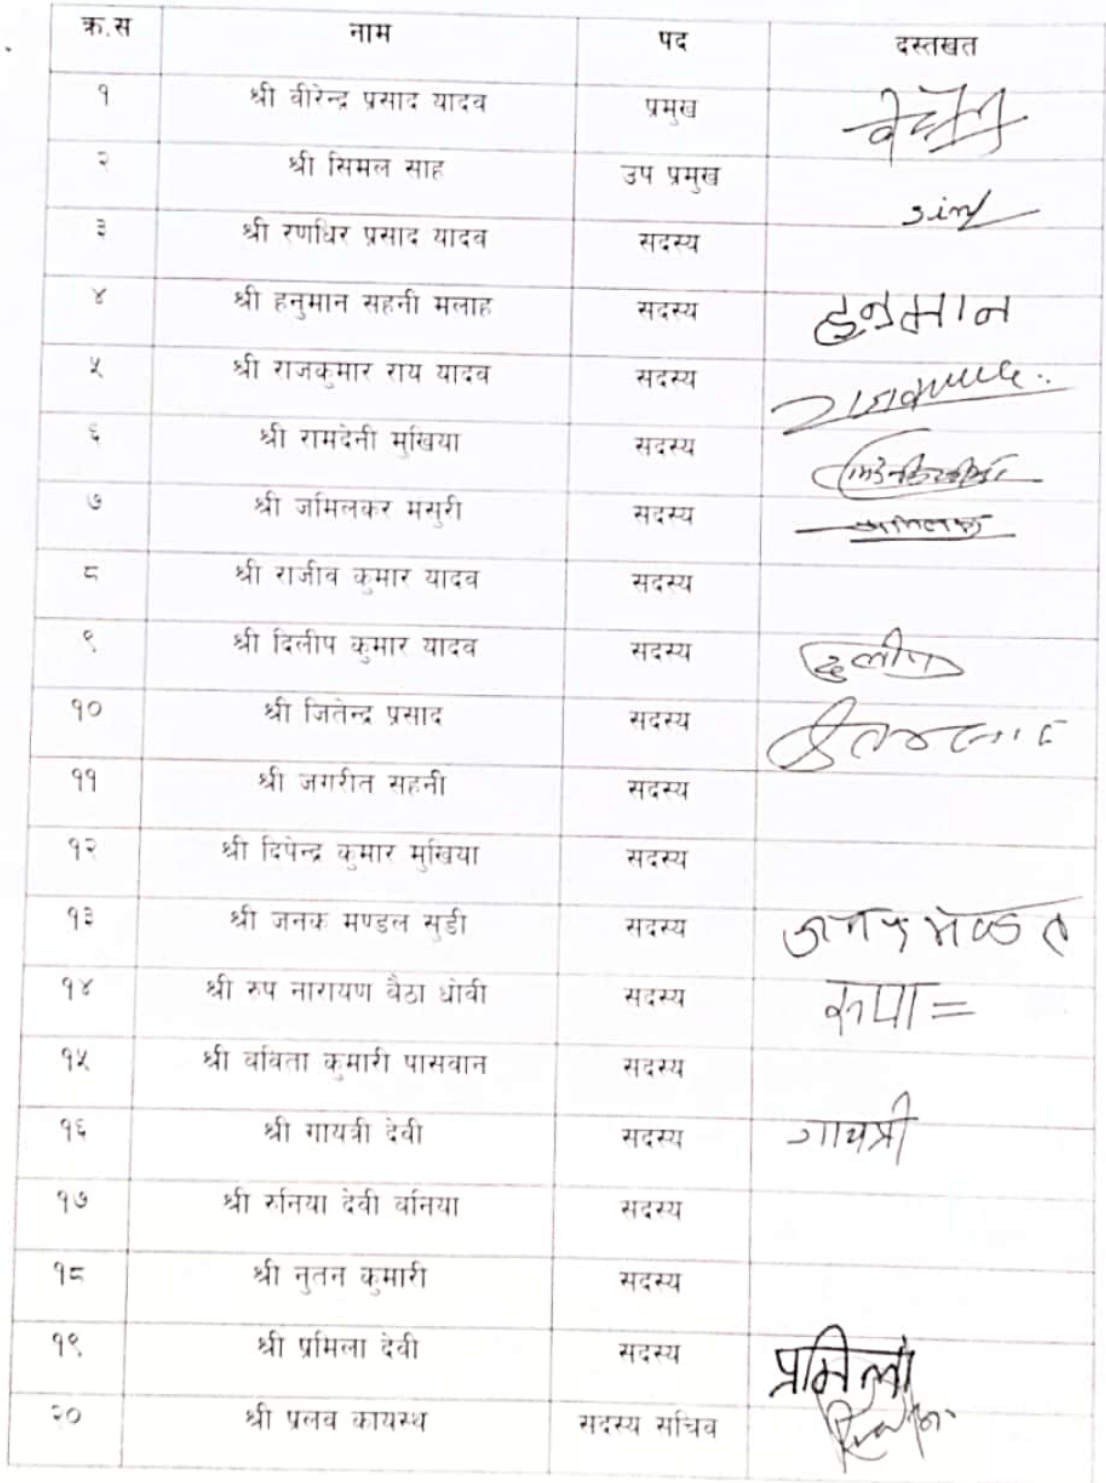 क्र.स नाम पद दस्तखत
१ श्री वीरेन्द्र प्रसाद यादव प्रमुख
२ श्री सिमल साह उप प्रमुख
३ श्री रणधिर प्रसाद यादव सदस्य
४ श्री हनुमान सहनी मलाह सदस्य हनुमान
५ श्री राजकुमार राय यादव सदस्य
६ श्री रामदेनी मुखिया सदस्य
७ श्री जमिलकर मसुरी सदस्य
८ श्री राजीव कुमार यादव सदस्य
९ श्री दिलीप कुमार यादव सदस्य
१० श्री जितेन्द्र प्रसाद सदस्य
११ श्री जगरीत सहनी सदस्य
१२ श्री दिपेन्द्र कुमार मुखिया सदस्य
१३ श्री जनक मण्डल सुडी सदस्य
१४ श्री रुप नारायण बैठा धोवी सदस्य
१५ श्री वविता कुमारी पासवान सदस्य
१६ श्री गायत्री देवी सदस्य गायत्री
१७ श्री रुनिया देवी वनिया सदस्य
१८ श्री नुतन कुमारी सदस्य
१९ श्री प्रमिला देवी सदस्य प्रमिला
२० श्री प्रलव कायस्थ सदस्य सचिव